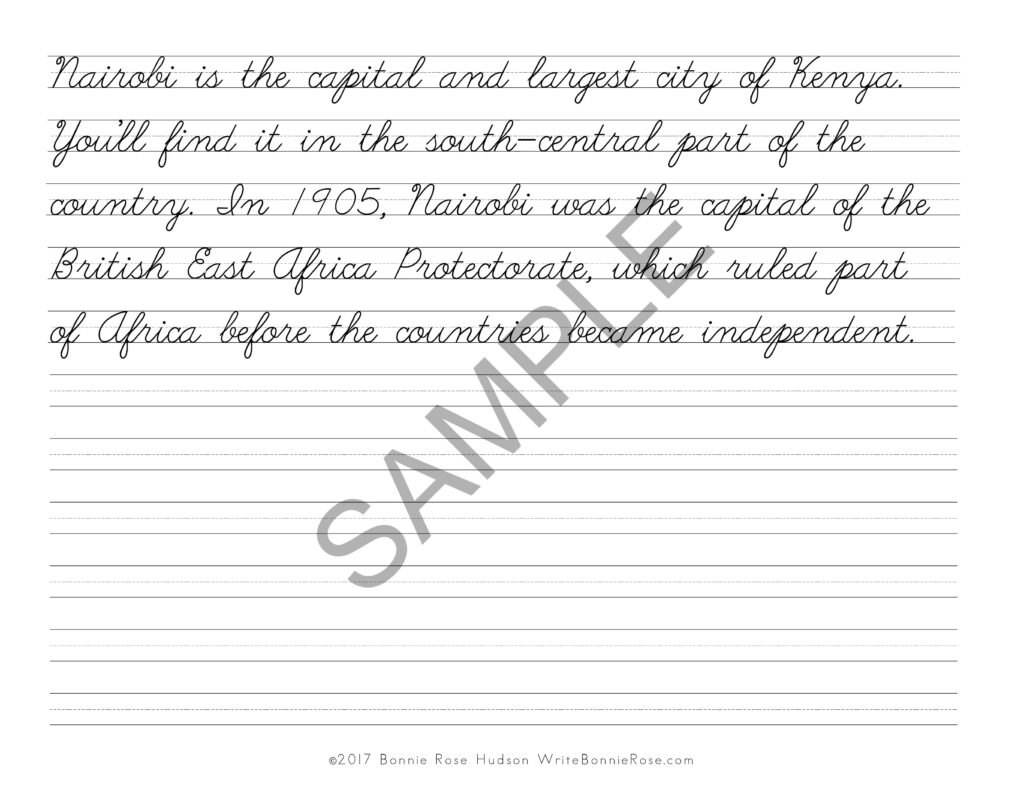 Nairobi is the capital and largest city of Kenya.
You'll find it in the south-central part of the
country. In 1905, Nairobi was the capital of the
British East Africa Protectorate, which ruled part
of Africa before the countries became independent.
SAMPLE
©2017 Bonnie Rose Hudson WriteBonnieRose.com